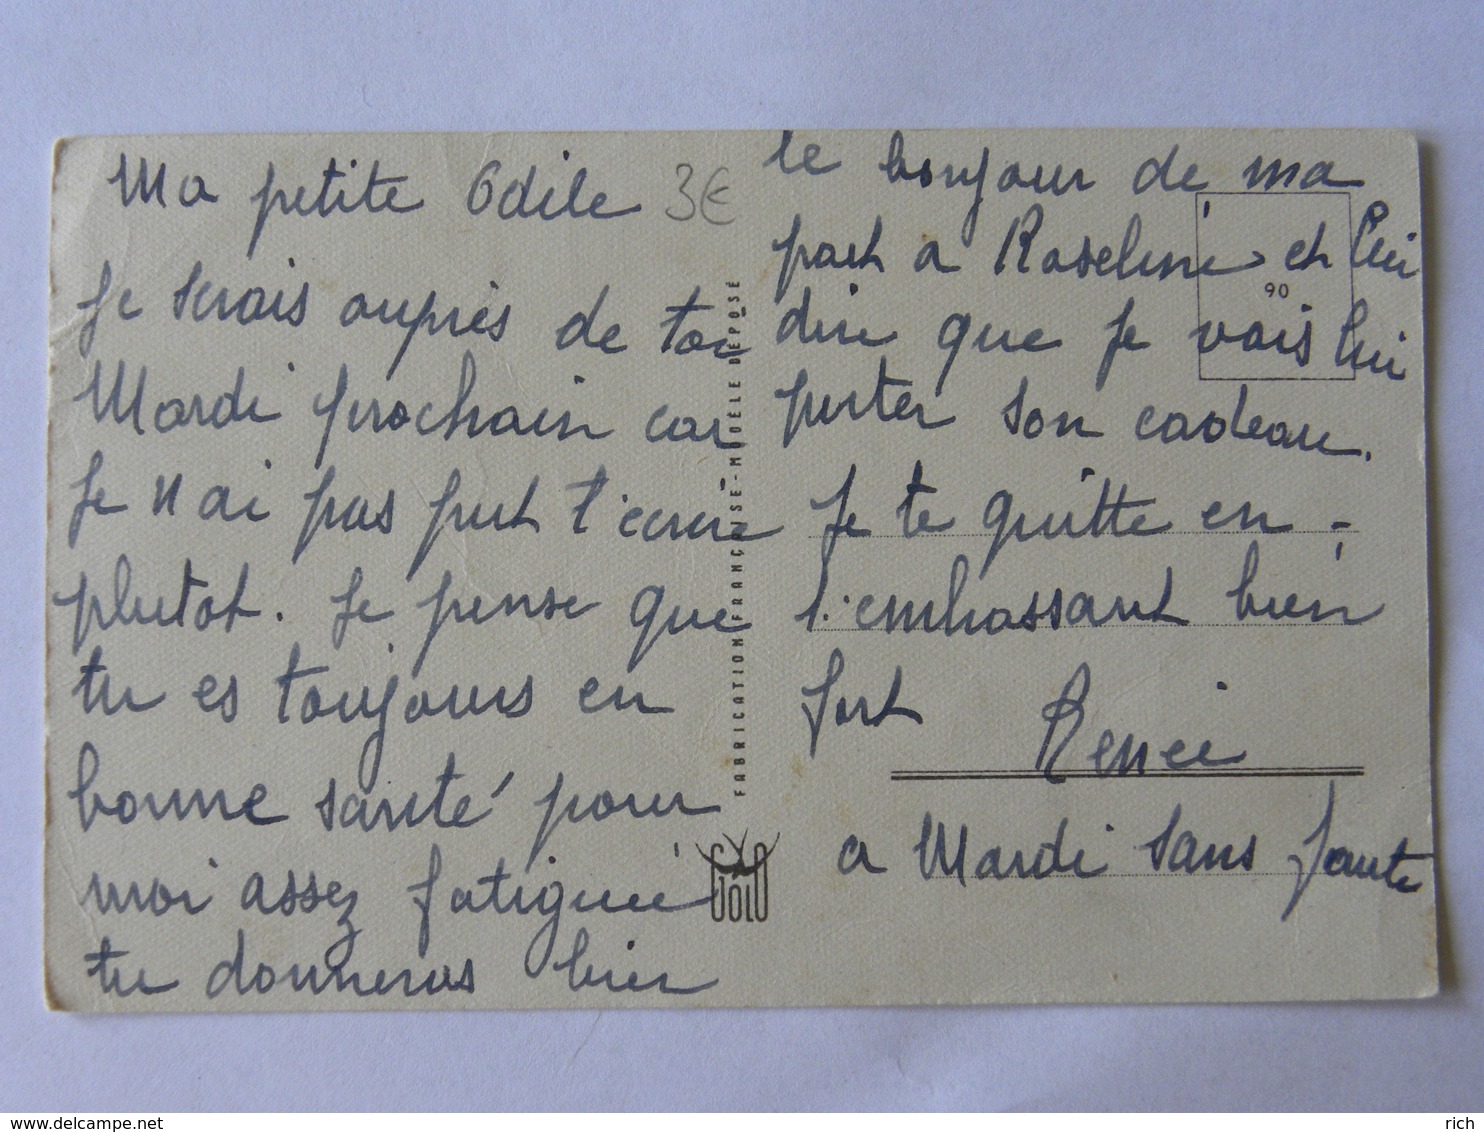 Ma petite Odile 3€
Je serais auprès de toi
Mardi prochain car
Je n ai pas put t'ecrire
plutot. Je pense que
tu es toujours en
bonne santé pour
moi assez fatiguée
tu donneras bien
le bonjour de ma
part a Roseline et lui
dire que je vais lui
porter son cadeau.
Je te quitte en -
t'embrassant bien
fort Renée
a Mardi sans faute
90
FABRICATION FRANÇAISE - MODÈLE DÉPOSÉ
GOLO
delcampe.net
rich